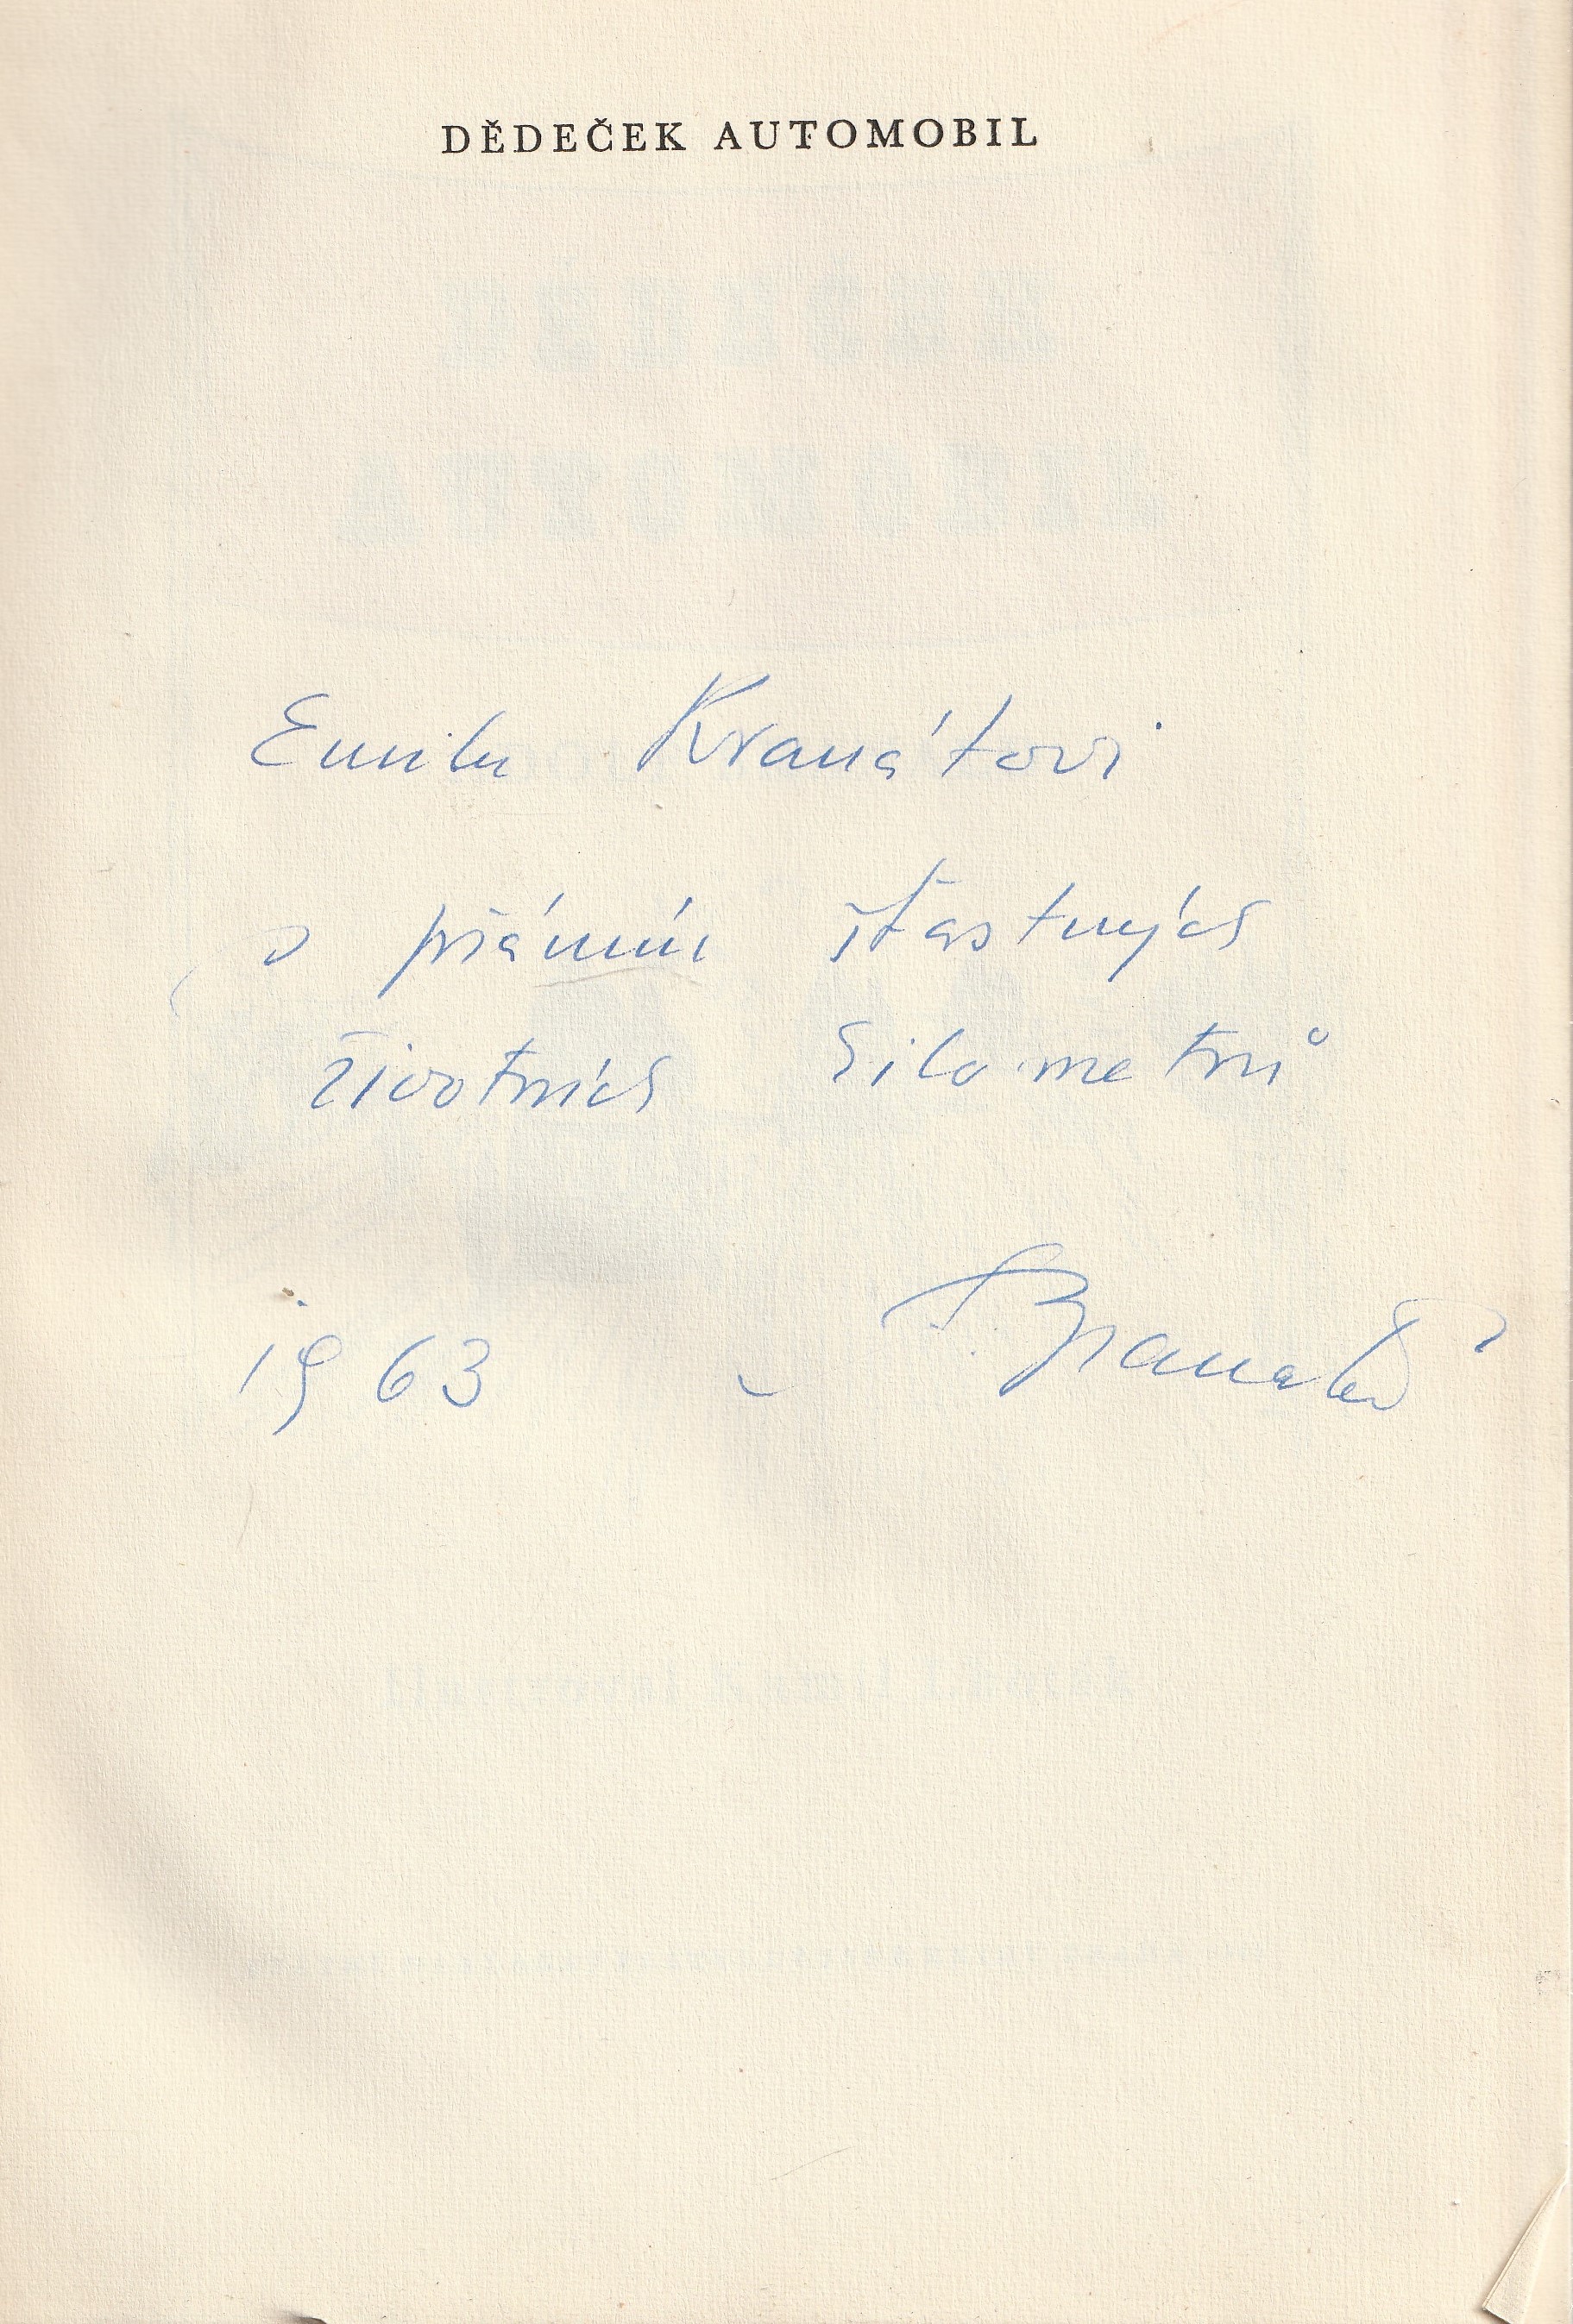 DĚDEČEK AUTOMOBIL
Emilu Kranátovi
s přáním šťastných
životních kilometrů
1963 A. Branald